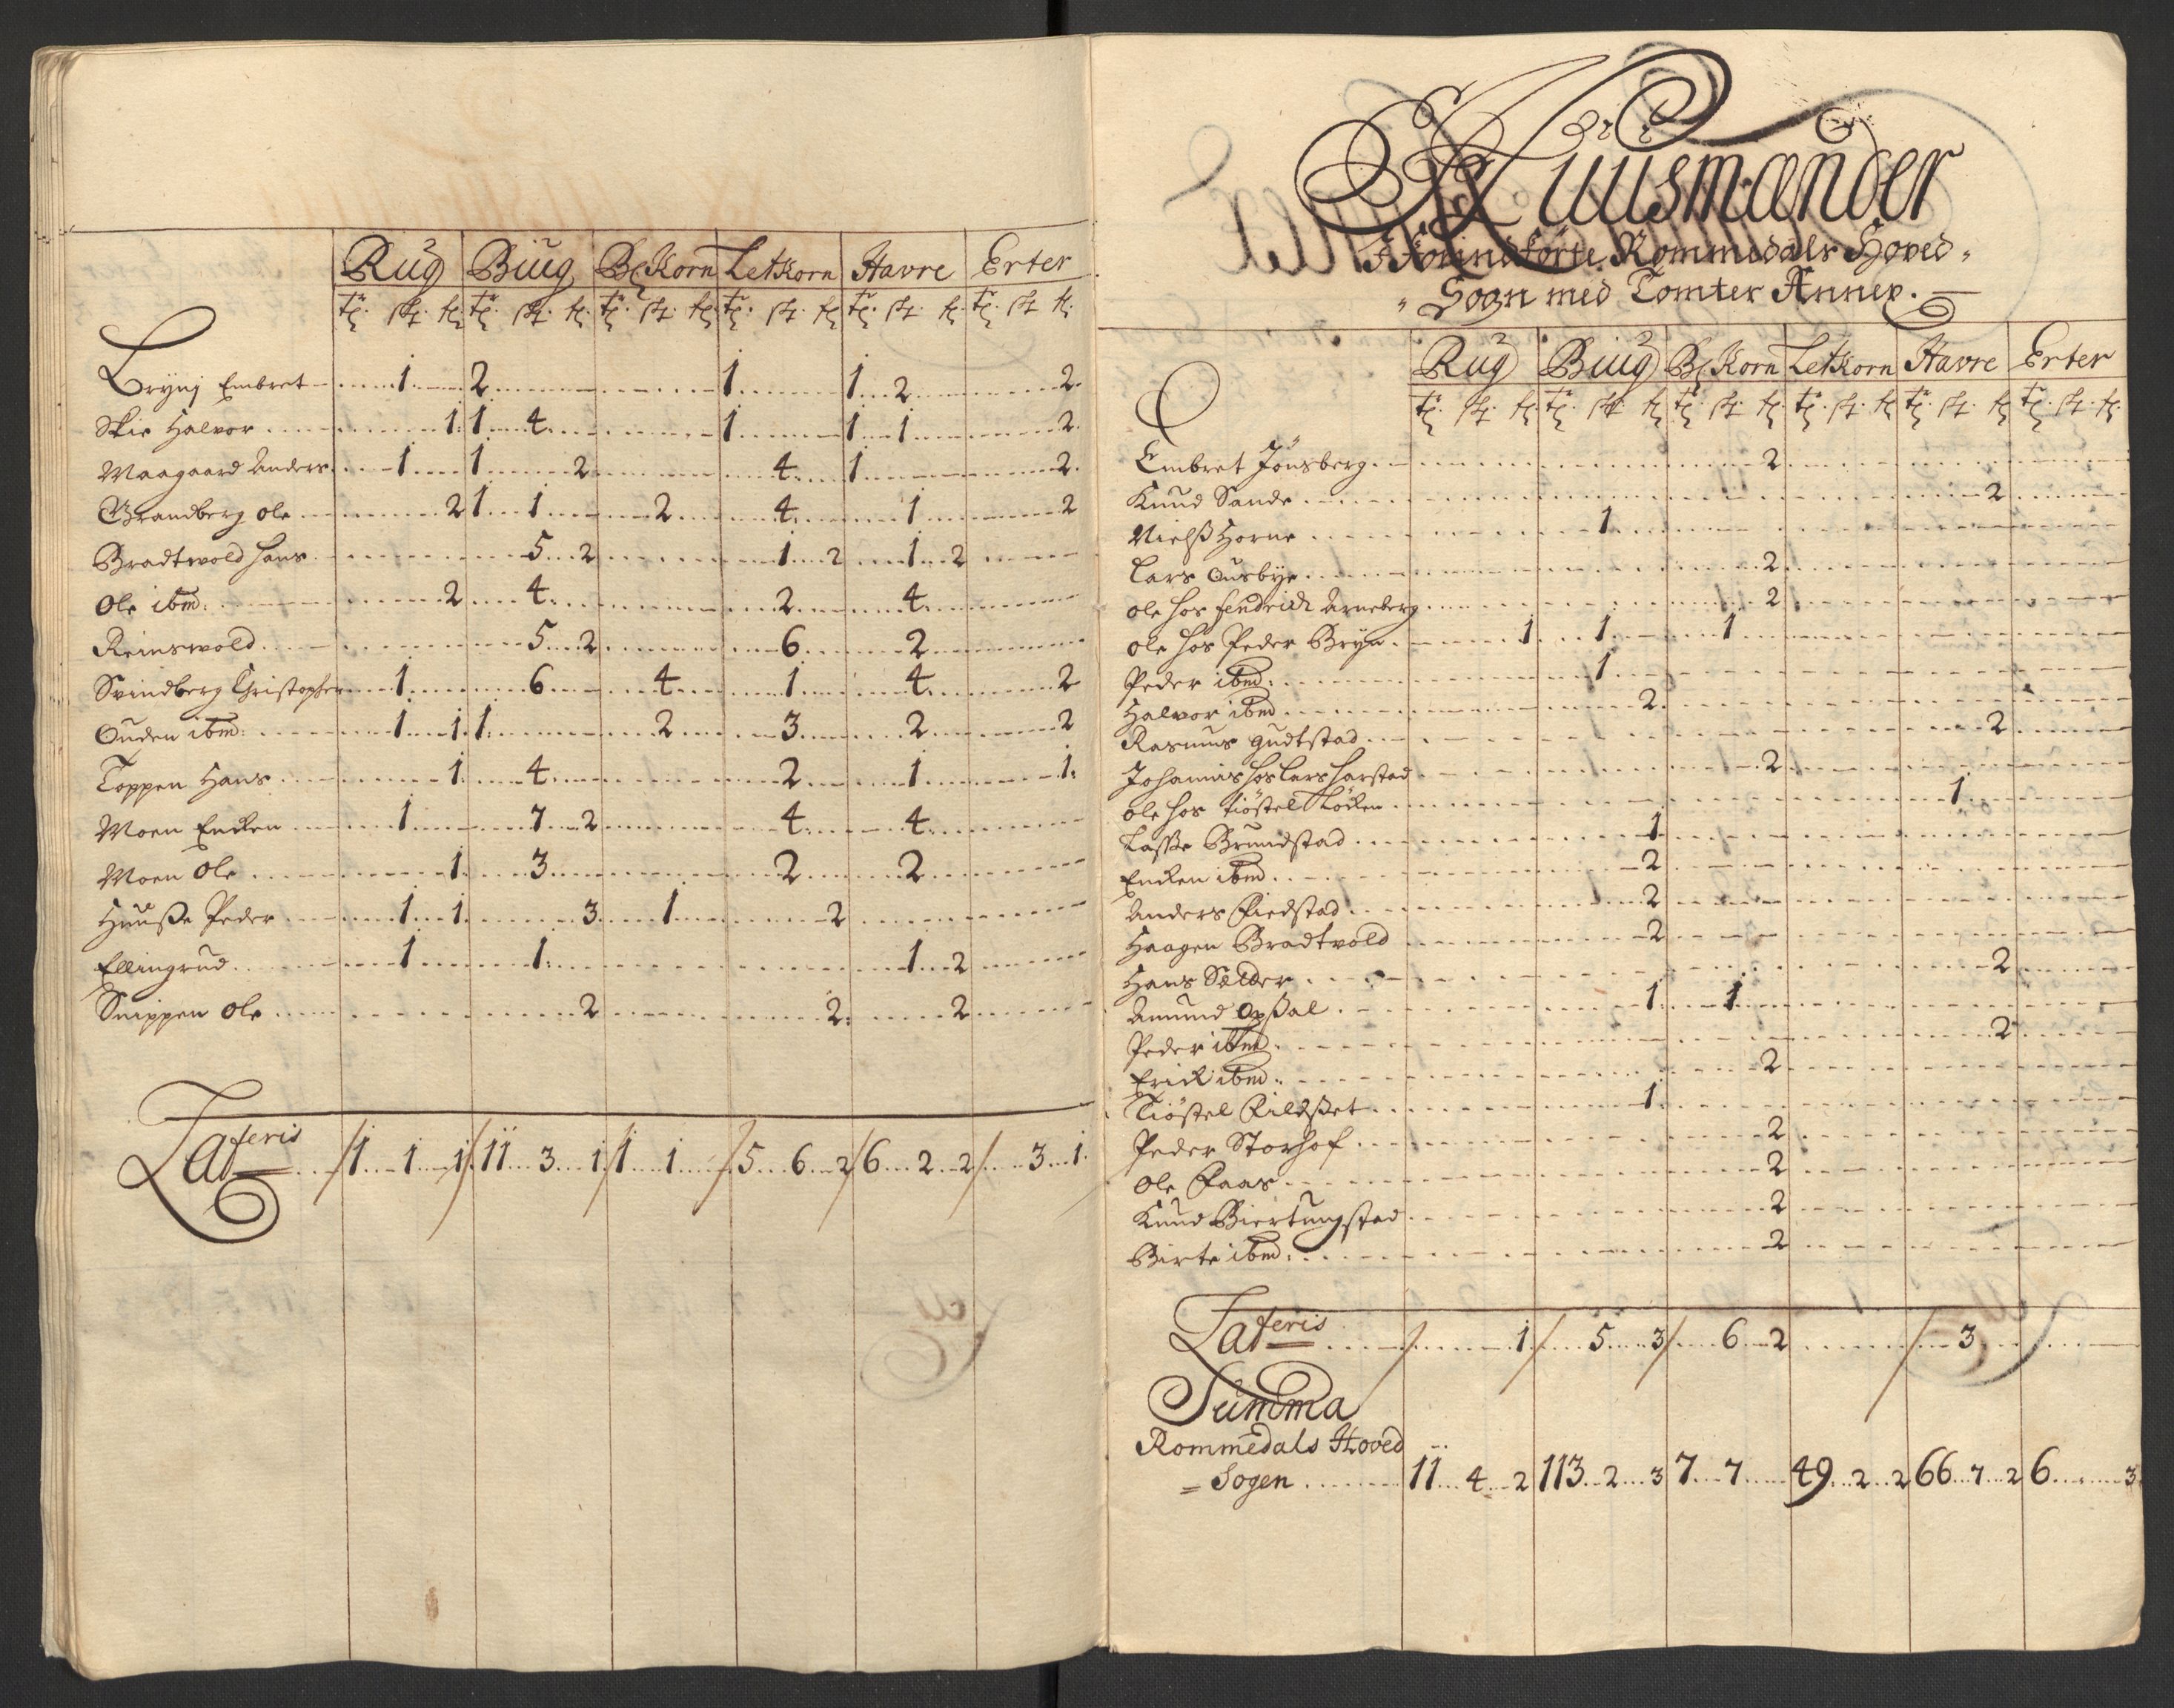 Rug Biug Bl Korn Letkorn Havre Erter
tr. sk. fr. tr. sk. fr. tr. sk. fr. tr. sk. fr. tr. sk. fr. tr. sk. fr.
Brynj Embret 1 2 1 1 2 2
Skie Halvor 1 1 4 1 1 1 2
Maagaard Anders 1 1 2 4 1 2
Grandberg Ole 2 1 1 2 4 1 2
Bradtwold Hans 5 2 1 2 1 2
Ole ibm: 2 4 2 4
Reinswold 5 2 6 2
Svindberg Christopher 1 6 4 1 4 2
Ouden ibm: 1 1 1 2 3 2 2
Toppen Hans 1 4 2 1 1
Moen Encken 1 7 2 4 4
Moen Ole 1 3 2 2
Huusse Peder 1 1 3 1 2
Ellingrud 1 1 1 2
Snippen Ole 2 2 2
Lateris 1 1 1 11 3 1 1 1 5 6 2 6 2 2 3 1
Huusmænder
I Forindførte Rommedals Hoved
Sogn med Tomter Annex.
Rug Biug Bl Korn Letkorn Havre Erter
tr. sk. fr. tr. sk. fr. tr. sk. fr. tr. sk. fr. tr. sk. fr. tr. sk. fr.
Embret Jønsberg 2
Knud Sande 2
Nielss Horne 1
Lars Ousbye 2
Ole hos Hendrich Arneberg 2
Ole hos Peder Bryn 1 1 1
Peder ibm: 1
Halvor ibm 2
Rasmus Gudtstad 2
Johannis hos Lars Harstad 2
Ole hos Tiøstel Løcken 1
Lasse Brundstad 1
Encken ibm 2
Anders Riedstad 2
Haagen Bradtvold 2
Hans Sælder 2
Amund Opsal 1 1
Peder ibm 2
Erich ibm: 2
Tiøstel Kildset 1
Peder Storhof 2
Ole Raas 2
Knud Biertungstad 2
Birte ibm: 2
Lateris 1 5 3 6 2 3
Summa
Rommedals Hoved
Sogen 11 4 2 113 2 3 7 7 49 2 2 66 7 2 6 3